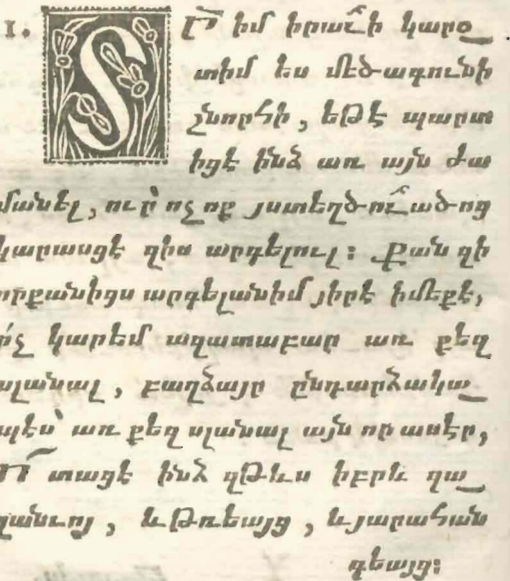 1. ՏՐ իմ իրաւի կարօ_
տիմ ես մեծագունի
շնորհի, եթէ պարտ
իցէ ինձ առ այն ժա
մանել, ուր ոչ ոք յստեղծուածոց
կարասցէ զիս արգելուլ։ Քան զի
որքանիցս արգելանիմ յիրէ իմեքէ,
ոչ կարեմ ազատաբար առ քեզ
սլանալ, բաղձայր ընդարձակա_
պէս՝ առ քեզ սլանալ այն որ ասէր,
Ո՞ տացէ ինձ զթևս իբրև զա_
ղանւոյ, և թռեայց, և յարահան
գեայց։